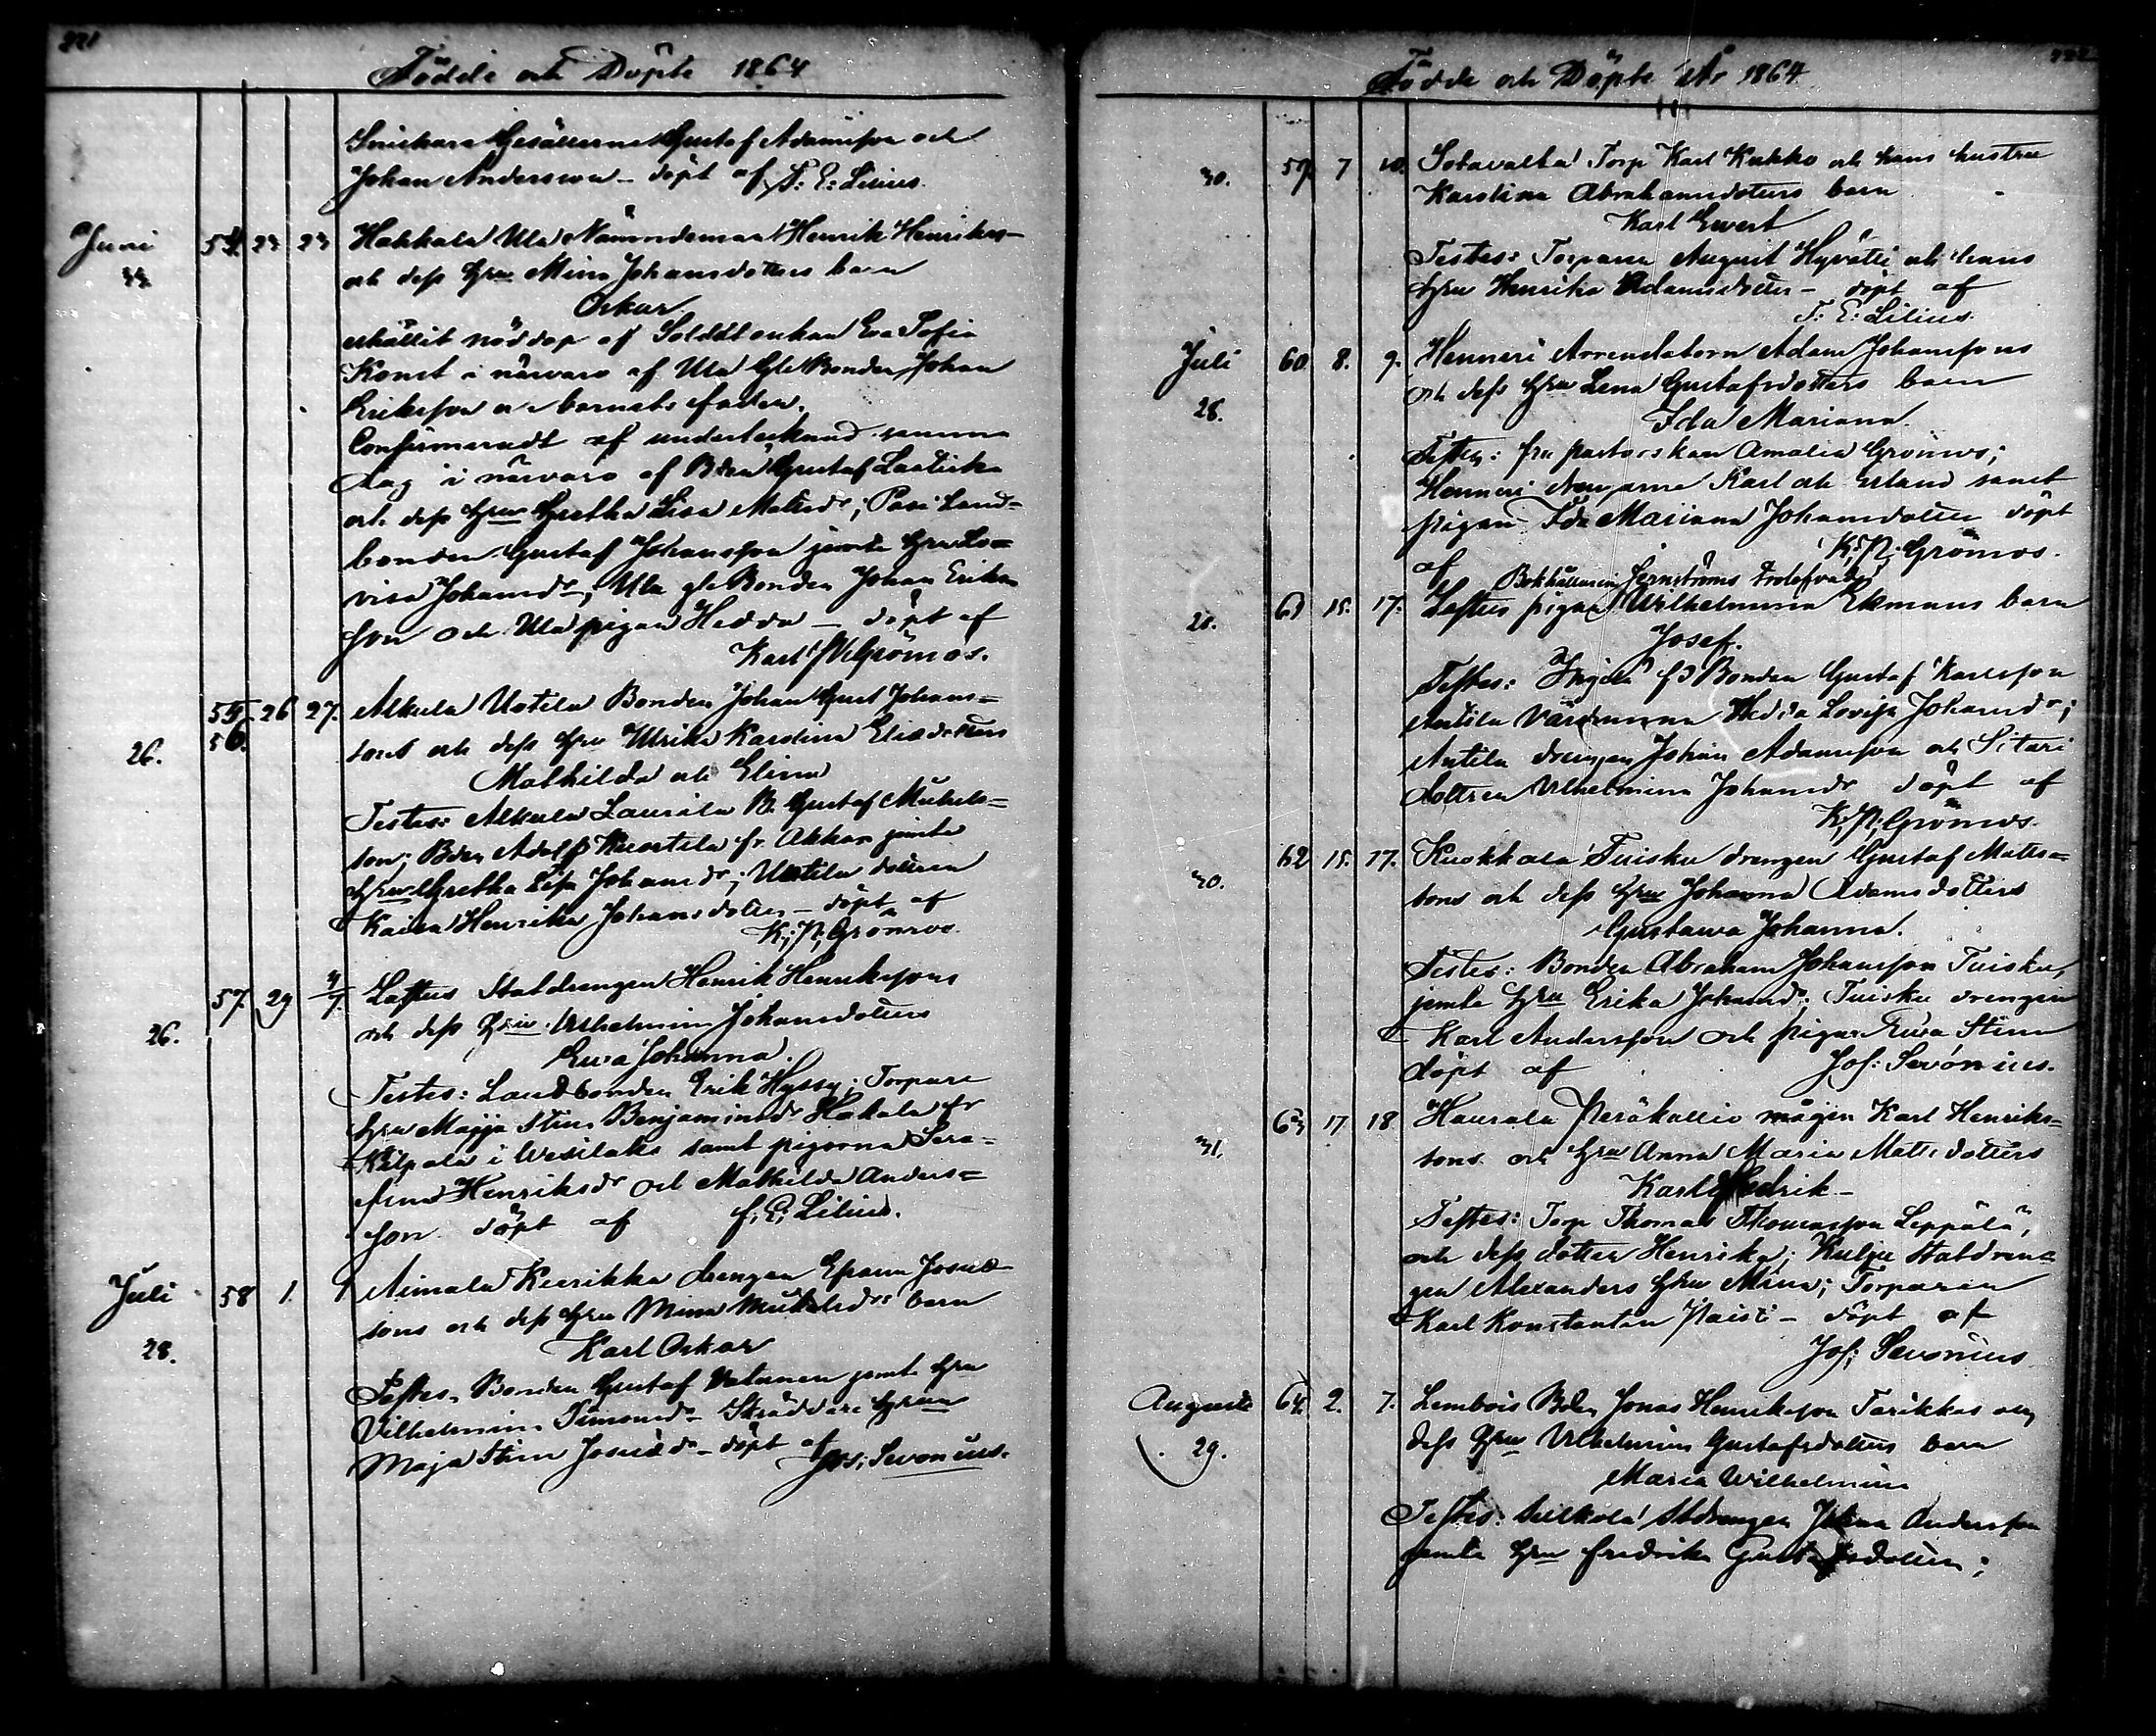 221
Födde och Döpte 1864
Snickare Gesällerne Gustaf Adamsson och
Johan Andersson – döpt af F: E: Lilius.
Juni 54. 23 23 Hakkala Ula Nämndeman Henrik Henriks-
och dess hru Mina Johansdotters barn
Oskar.
erhållit nöddop af Soldat enkan Eva Sofia
Konst i närvaro af Ula Gle Bonden Johan
Eriksson och barnets fader.
Confirmeradt af undertecknad samma
dag i närvaro af Bden Gustaf
och dess hru Gretha Lisa Matsdr; Pasi Land=
bonden Gustaf Johansson jemte hru Lo=
visa Johansdr, Ula gle Bonden Johan Eriks
son och Ula pigan Hedda – döpt af
Karl N. Grönros.
26. 55 56. 26 27. Alkula Uotila Bonden Johan Gust Johans=
sons och dess hru Ulrika Karolina Eliædotters
Mathilda och Elina
Testes: Alkula Laurila B. Gustaf Mickels=
son; Bden Adolf Kuortila fr. Akkas jemte
hru Gretha Lisa Johansdr; Uotila dottren
Kaisa Henrika Johansdotter – döpt af
K; N; Grönros.
26. 57. 29 4/7. Laftus Statdrengen Henrik Henrikssons
och dess hru Vilhelmina Johansdotters
Eva Johanna.
Testes: Landbonden Erik Hyssy; Torpare
hru Majja Stina Benjaminsdr Hakala fr
Kilpala i Vesilaks samt pigorna Sera=
fina Henriksdr och Mathilda Anders=
son döpt af F; E; Lilius.
Juli 28. 58 1. 9 Aimala Kurikka drengen Efraim Josuæ-
sons och dess hru Mina Mickelsdrs barn
Karl Oskar
Testes, Bonden Gustaf jemte hru
Vilhelmina Simonsdr Skräddare hrun
Maja Stina Josuædr – döpt af Jos; Sevonius.
222
Födde och Döpte År 1864.
30. 59. 7 10. Sotavalta Torp Karl Kukko och hans hustru
Karolina Abrahamsdotters barn
Karl Evert
Testes: Torparen August Hyvätti och hans
hru Henrika Adamsdotter – döpt af
F: E: Lilius.
Juli 28. 60 8. 9. Henneri Arrendatorn Adam Johanssons
och dess hru Lena Gustafsdotters barn
Ida Mariana.
Testes: fru pastorskan Amalia Grönros;
Henneri drengarne Karl och Erland samt
pigan Ida Mariana Johansdotter döpt
af K; N; Grönros.
Bokhållaren Jernströms
28. 61 15. 17. Laftus pigan Wilhelmina Ekmans barn
Josef.
Testes: fd Bonden Gustaf Karlsson
Antila Värdinnan Hedda Lovisa Johansdr;
Antila drengen Johan Adamsson och Sitari
dottren Vilhelmina Johansdr döpt af
K; N; Grönros.
30. 62 15. 17. Kuokkala Tuisku drengen Gustaf Matts=
sons och dess hru Johanna Adamsdotters
Gustava Johanna.
Testes: Bonden Abraham Johansson Tuisku,
jemte hru Erika Johansdr; Tuisku drengen
Karl Andersson och pigan Eva Stina
döpt af Jos: Sevónius.
31. 63 17 18 Haurala Peräkallio mågen Karl Henriks=
sons och hru Anna Maria Mattsdotters
Karl Fredrik –
Testes: Torp Thomas Thomasson Leppälä,
och dess dotter Henrika; Kulju Statdren=
gen Alexanders hru Mina; Torparen
Karl Konstantin – döpt af
Jos; Sevonius
Augusti 29. 64. 2. 7. Lembois Bden Jonas Henriksson Tarikkas och
dess hru Vilhelmina Gustafsdotters barn
Maria Wilhelmina
Testes: Stdrengen Johan Andersson
jemte hru Fredrika Gustafsdotter;